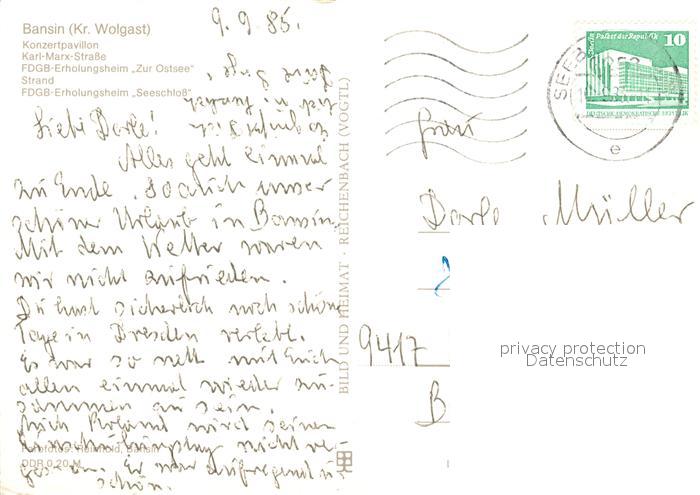 Bansin (Kr. Wolgast)
Konzertpavillon
Karl-Marx-Straße
FDGB-Erholungsheim „Zur Ostsee"
Strand
FDGB-Erholungsheim „Seeschloß"
9. 9. 85.
Liebe Dorle!
Alles geht einmal
zu Ende, so auch unser
schöner Urlaub in Bansin.
Mit dem Wetter waren
wir nicht unzufrieden.
Du hast sicherlich noch schöne
Tage in Dresden verlebt.
Es war so nett mit Euch
allen einmal wieder zu-
sammen zu sein.
Auch Roland wird seine
Einschulung nicht ver-
gessen. Es war aufregend u.
schön.
Farbfotos: Reinhold, Bansin
DDR 0,20 M
BILD UND HEIMAT · REICHENBACH (VOGTL)
Berlin Palast der Republik 10
DEUTSCHE DEMOKRATISCHE REPUBLIK
SEEB
e
Frau
Dorle Müller
9417
B
privacy protection
Datenschutz